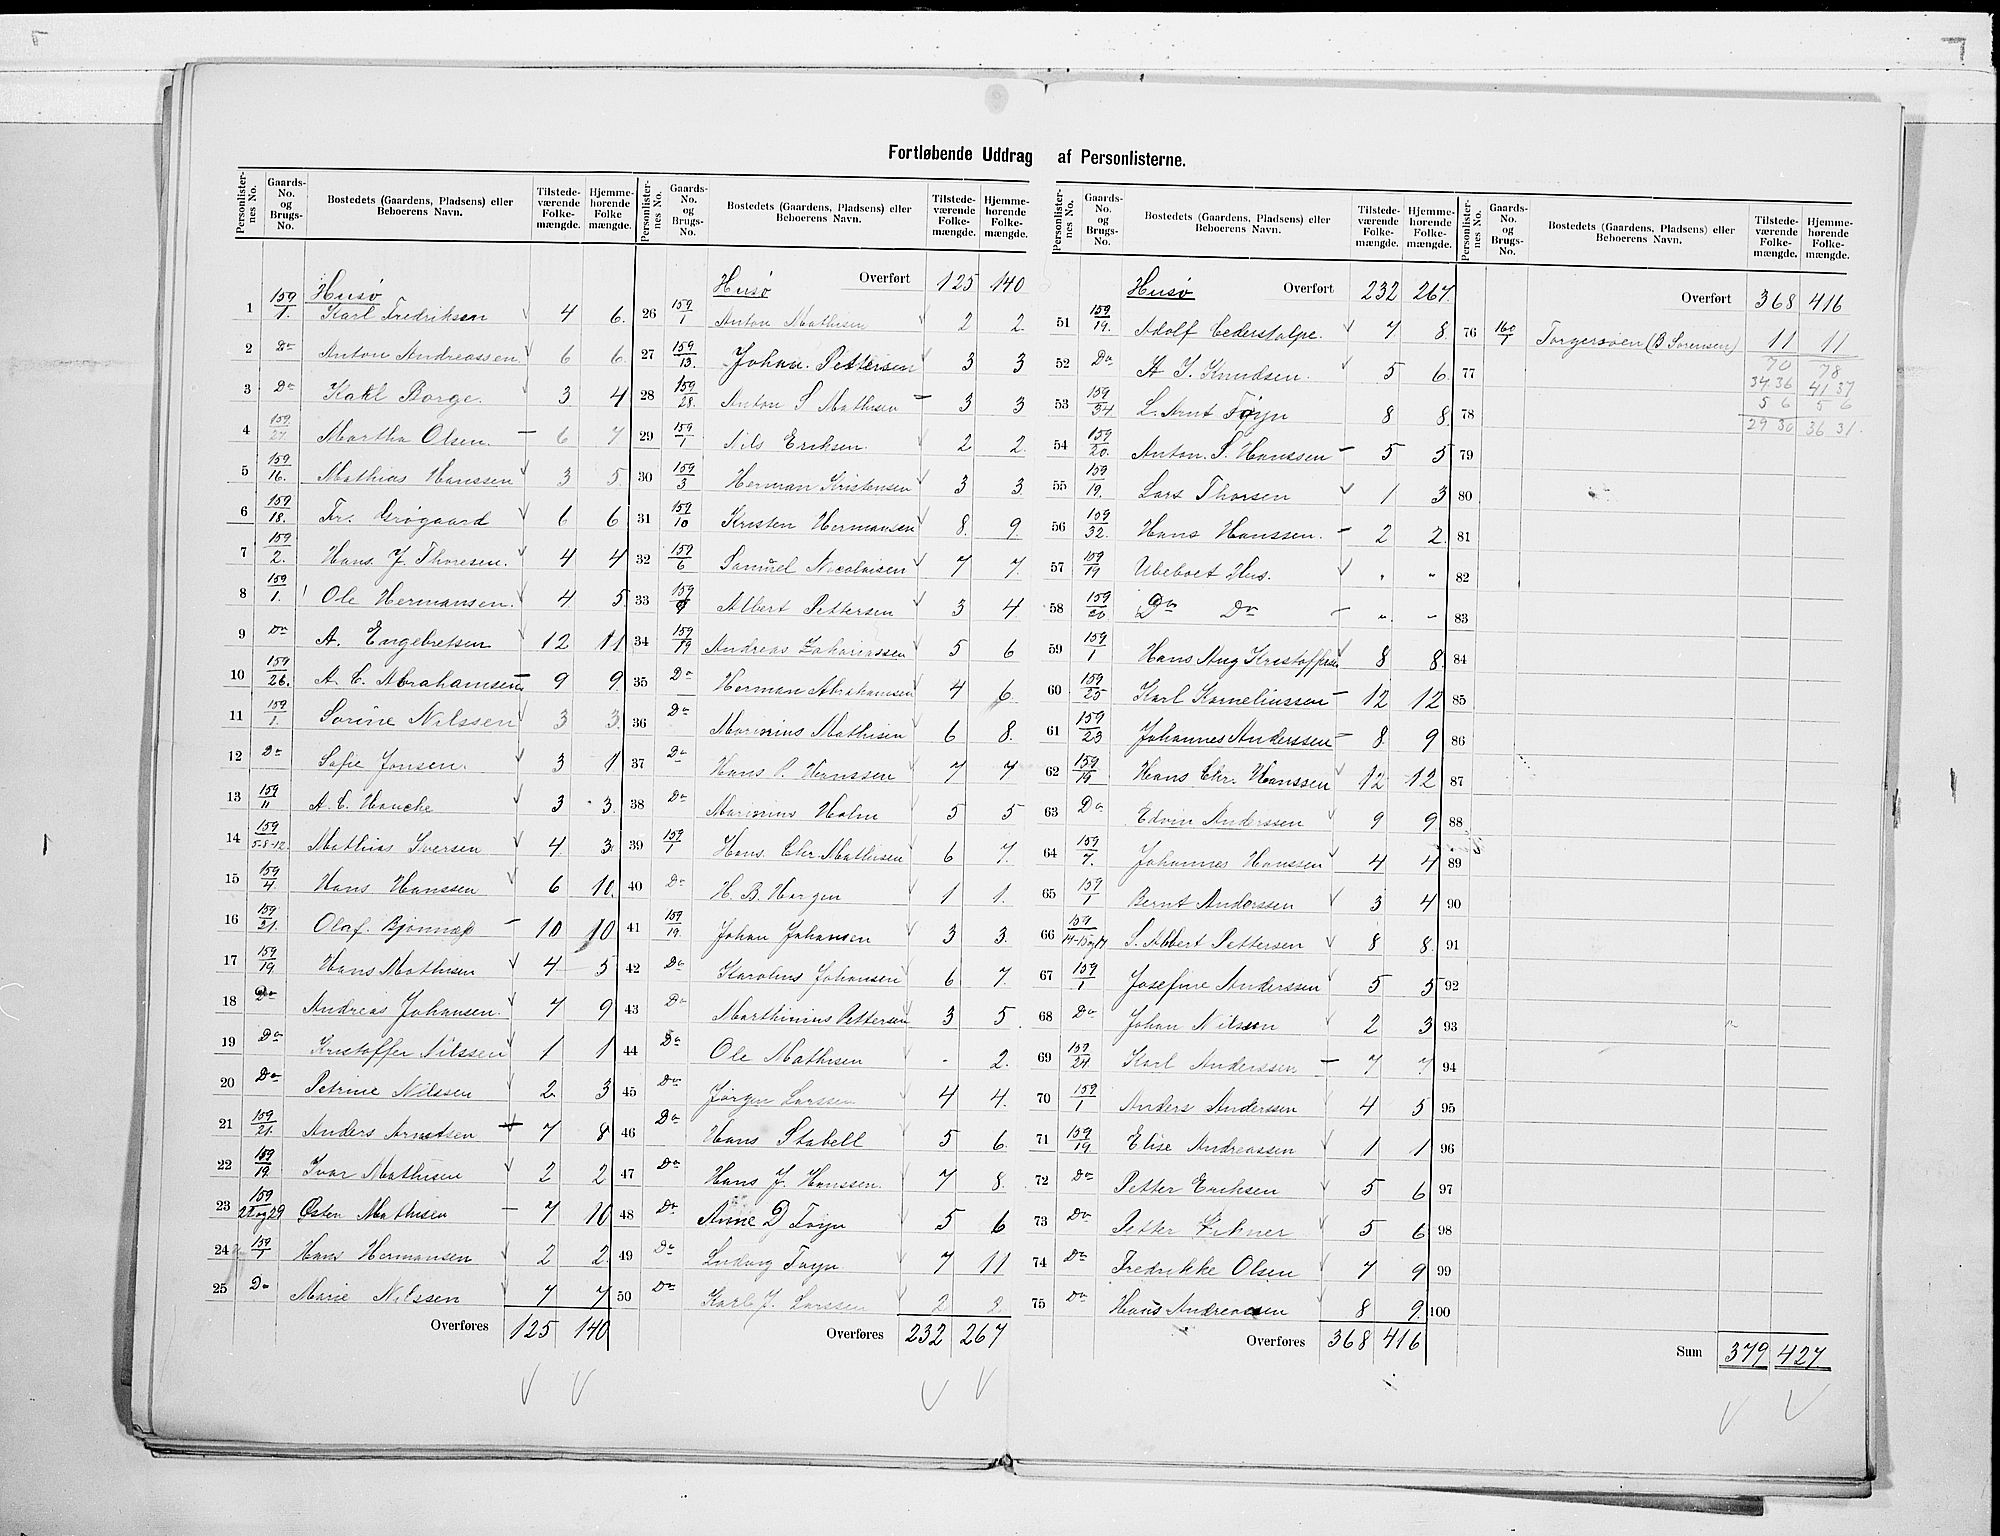 Fortløbende Uddrag af Personlisterne.
Personlister-nes No. Gaards-No. og Brugs-No. Bostedets (Gaardens, Pladsens) eller Beboerens Navn. Tilstede-værende Folke-mængde. Hjemme-hørende Folke mængde.
Husø
1 159/1. Karl Fredriksen √ 4 6.
2 Do Anton Andreassen √ 6 6.
3 Do Karl Borge. √ 3 4
4 159/27. Martha Olsen. — 6 7
5 159/16. Mathias Hanssen √ 3 5.
6 159/18. Fr. Grøgaard √ 6 6
7 159/2. Hans J. Thoresen. √ 4 4
8 159/1. Ole Hermansen. √ 4 5
9 Do A. Engebretsen √ 12 11
10 159/26. A. C. Abrahamsen — 9 9.
11 159/1. Sorine Nilssen √ 3 3.
12 Do Sofie Jonsen. √ 3 1
13 159/11 A. C. Hauche √ 3 3.
14 159/5-8-12. Mathias Iversen √ 4 3.
15 159/4 Hans Hanssen √ 6 10.
16 159/21. Olaf. — 10 10
17 159/19 Hans Mathisen √ 4 5
18 Do Andreas Johansen. √ 7 9
19 Do Kristoffer Nilssen √ 1 1
20 Do Petrine Nilssen √ 2 3
21 159/21. Anders Arntsen 7 8
22 159/19 Ivar Mathisen √ 2 2
23 159/ og 29 Østen Mathisen — 7 10
24 159/1 Hans Hermansen √ 2 2.
25 Do Marie Nilssen √ 7 7
Overføres 125 140
Personlister-nes No. Gaards-No. og Brugs-No. Bostedets (Gaardens, Pladsens) eller Beboerens Navn. Tilstede-værende Folke-mængde. Hjemme-hørende Folke-mængde.
Husø Overført 125 140
26 159/1 Anton Mathisen √ 2 2.
27 159/13. Johan. Pettersen √ 3 3
28 159/28. Anton S Mathisen — 3 3
29 159/1 Nils Eriksen. √ 2 2.
30 159/3 Herman Kristensen √ 3 3.
31 159/10 Kristen Hermansen √ 8. 9.
32 159/6 Samuel Nicolaisen √ 7 7.
33 159/9 Albert Pettersen √ 3 4.
34 159/19 Andreas Zakariassen √ 5 6
35 Do Herman Abrahamsen √ 4 6.
36 Do Marinius Mathisen √ 6 8.
37 Do Hans P. Hanssen √ 7 7
38 Do Marinius Holm √ 5 5
39 159/1 Hans. Chr. Mathisen √ 6 7.
40 Do H. B. Horgen √ 1 1.
41 159/19. Johan Johansen √ 3 3.
42 Do Karolius Johansen √ 6 7.
43 Do Marthinius Pettersen √ 3 5.
44 Do Ole Mathisen √ - 2.
45 Do Jørgen Larssen √ 4 4.
46 Do Hans Stabell √ 5 6
47 Do Hans J. Hanssen. √ 7 8.
48 Do Anne D Foyn √ 5 6
49 Do Ludvig Foyn √ 7 11
50 Do Karl J. Larssen √ 2 2.
Overføres 232 267
Personlister-nes No. Gaards-No. og Brugs-No. Bostedets (Gaardens, Pladsens) eller Beboerens Navn. Tilstede-værende Folke-mængde. Hjemme-hørende Folke-mængde.
Husø Overført 232 267.
51 159/19. Adolf Cederstolpe. √ 7 8.
52 Do A J. Knudsen. √ 5 6.
53 159/34 L. Arnt Foyn √ 8 8.
54 159/20. Anton. S. Hanssen — 5 5
55 159/19. Lars Thorsen √ 1 3
56 159/32. Hans Hanssen. — 2 2.
57 159/19 Ubeboet Hus. √ " "
58 159/20 Do Do — " "
59 159/1 Hans Aug Kristoffersen 8 8.
60 159/25 Karl Korneliussen — 12 12
61 159/23 Johannes Anderssen — 8. 9
62 159/19. Hans Chr. Hanssen √ 12 12
63 Do Edvin Anderssen √ 9 9
64 159/7. Johannes Hanssen √ 4 4
65 159/1 Bernt Anderssen √ 3 4
66 159/ S. Albert Pettersen √ 8 8.
67 159/1 Josefine Anderssen √ 5 5
68 Do Johan Nilsen √ 2 3
69 159/24. Karl Anderssen — 7 7
70 159/1 Anders Anderssen √ 4 5
71 159/19 Elise Andreassen √ 1 1
72 Do Petter Eriksen √ 5 6
73 Do Petter √ 5 6
74 Do Fredrikke Olsen √ 7 9
75 Do Hans Andreassen √ 8 9.
Overføres 368 416
Personlister-nes No. Gaards-No. og Brugs-No. Bostedets (Gaardens, Pladsens) eller Beboerens Navn. Tilstede-værende Folke-mængde. Hjemme-hørende Folke-mængde.
Overført 368 416
76 160/1 Torgersøen (B Sørensen) 11 11
77 70 78
34 36 41 37
78 5 6 5 6
29 30 36 31.
79
80
81
82
83
84
85
86
87
88
89
90
91
92
93
94
95
96
97
98
99
100
Sum 379 427.